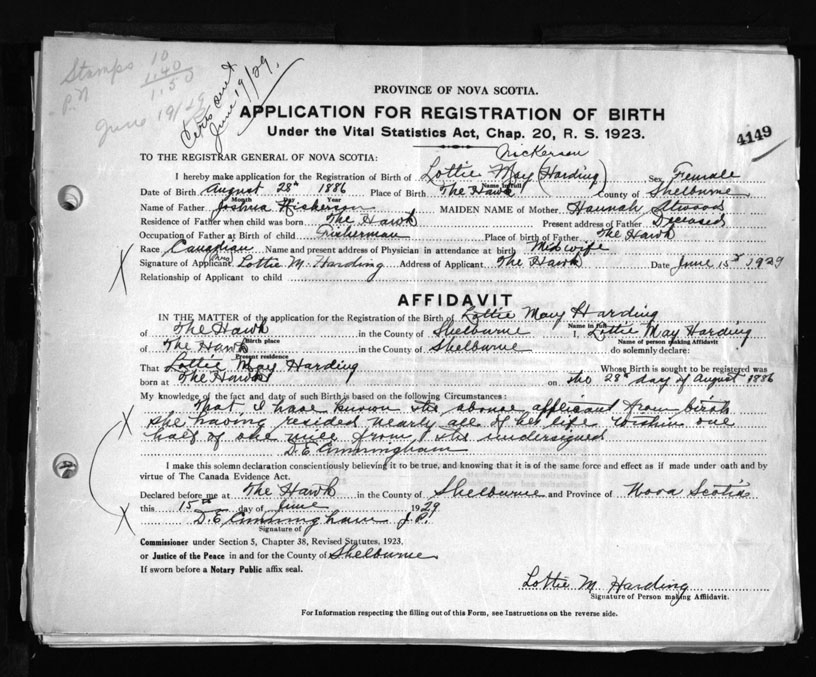 Stamps 10
1.40
P.N 1.50
June 19/29
Cert. sent
June 19/29.
PROVINCE OF NOVA SCOTIA.
APPLICATION FOR REGISTRATION OF BIRTH
Under the Vital Statistics Act, Chap. 20, R. S. 1923.
4149
TO THE REGISTRAR GENERAL OF NOVA SCOTIA:
Nickerson
I hereby make application for the Registration of Birth of Lottie May (Harding) Sex Female
Name in full
Date of Birth August 28th 1886 Place of Birth The Hawk County of Shelburne
Month Day Year
Name of Father Joshua Nickerson MAIDEN NAME of Mother Hannah Atwood
Residence of Father when child was born The Hawk Present address of Father Deceased
Occupation of Father at Birth of child Fisherman Place of birth of Father The Hawk
Race Canadian Name and present address of Physician in attendance at birth Midwife
Signature of Applicant (Mrs) Lottie M. Harding Address of Applicant The Hawk Date June 15th 1929
Relationship of Applicant to child
X
AFFIDAVIT
IN THE MATTER of the application for the Registration of the Birth of Lottie May Harding
Name in full
of The Hawk in the County of Shelburne I, Lottie May Harding
Birth place Name of person making Affidavit
of The Hawk in the County of Shelburne do solemnly declare:
Present residence
That Lottie May Harding Whose Birth is sought to be registered was
born at The Hawk on the 28th day of August 1886
My knowledge of the fact and date of such Birth is based on the following Circumstances:
That I have known the above applicant from birth
X she having resided nearly all of her life within one
half of one mile from the undersigned
D.E Cunningham
I make this solemn declaration conscientiously believing it to be true, and knowing that it is of the same force and effect as if made under oath and by
virtue of The Canada Evidence Act.
Declared before me at The Hawk in the County of Shelburne and Province of Nova Scotia
this 15th day of June 1929
X D.E Cunningham J.P.
Signature of
Commissioner under Section 5, Chapter 38, Revised Statutes, 1923,
or Justice of the Peace in and for the County of Shelburne
If sworn before a Notary Public affix seal.
Lottie M. Harding
Signature of Person making Affidavit.
For Information respecting the filling out of this Form, see Instructions on the reverse side.